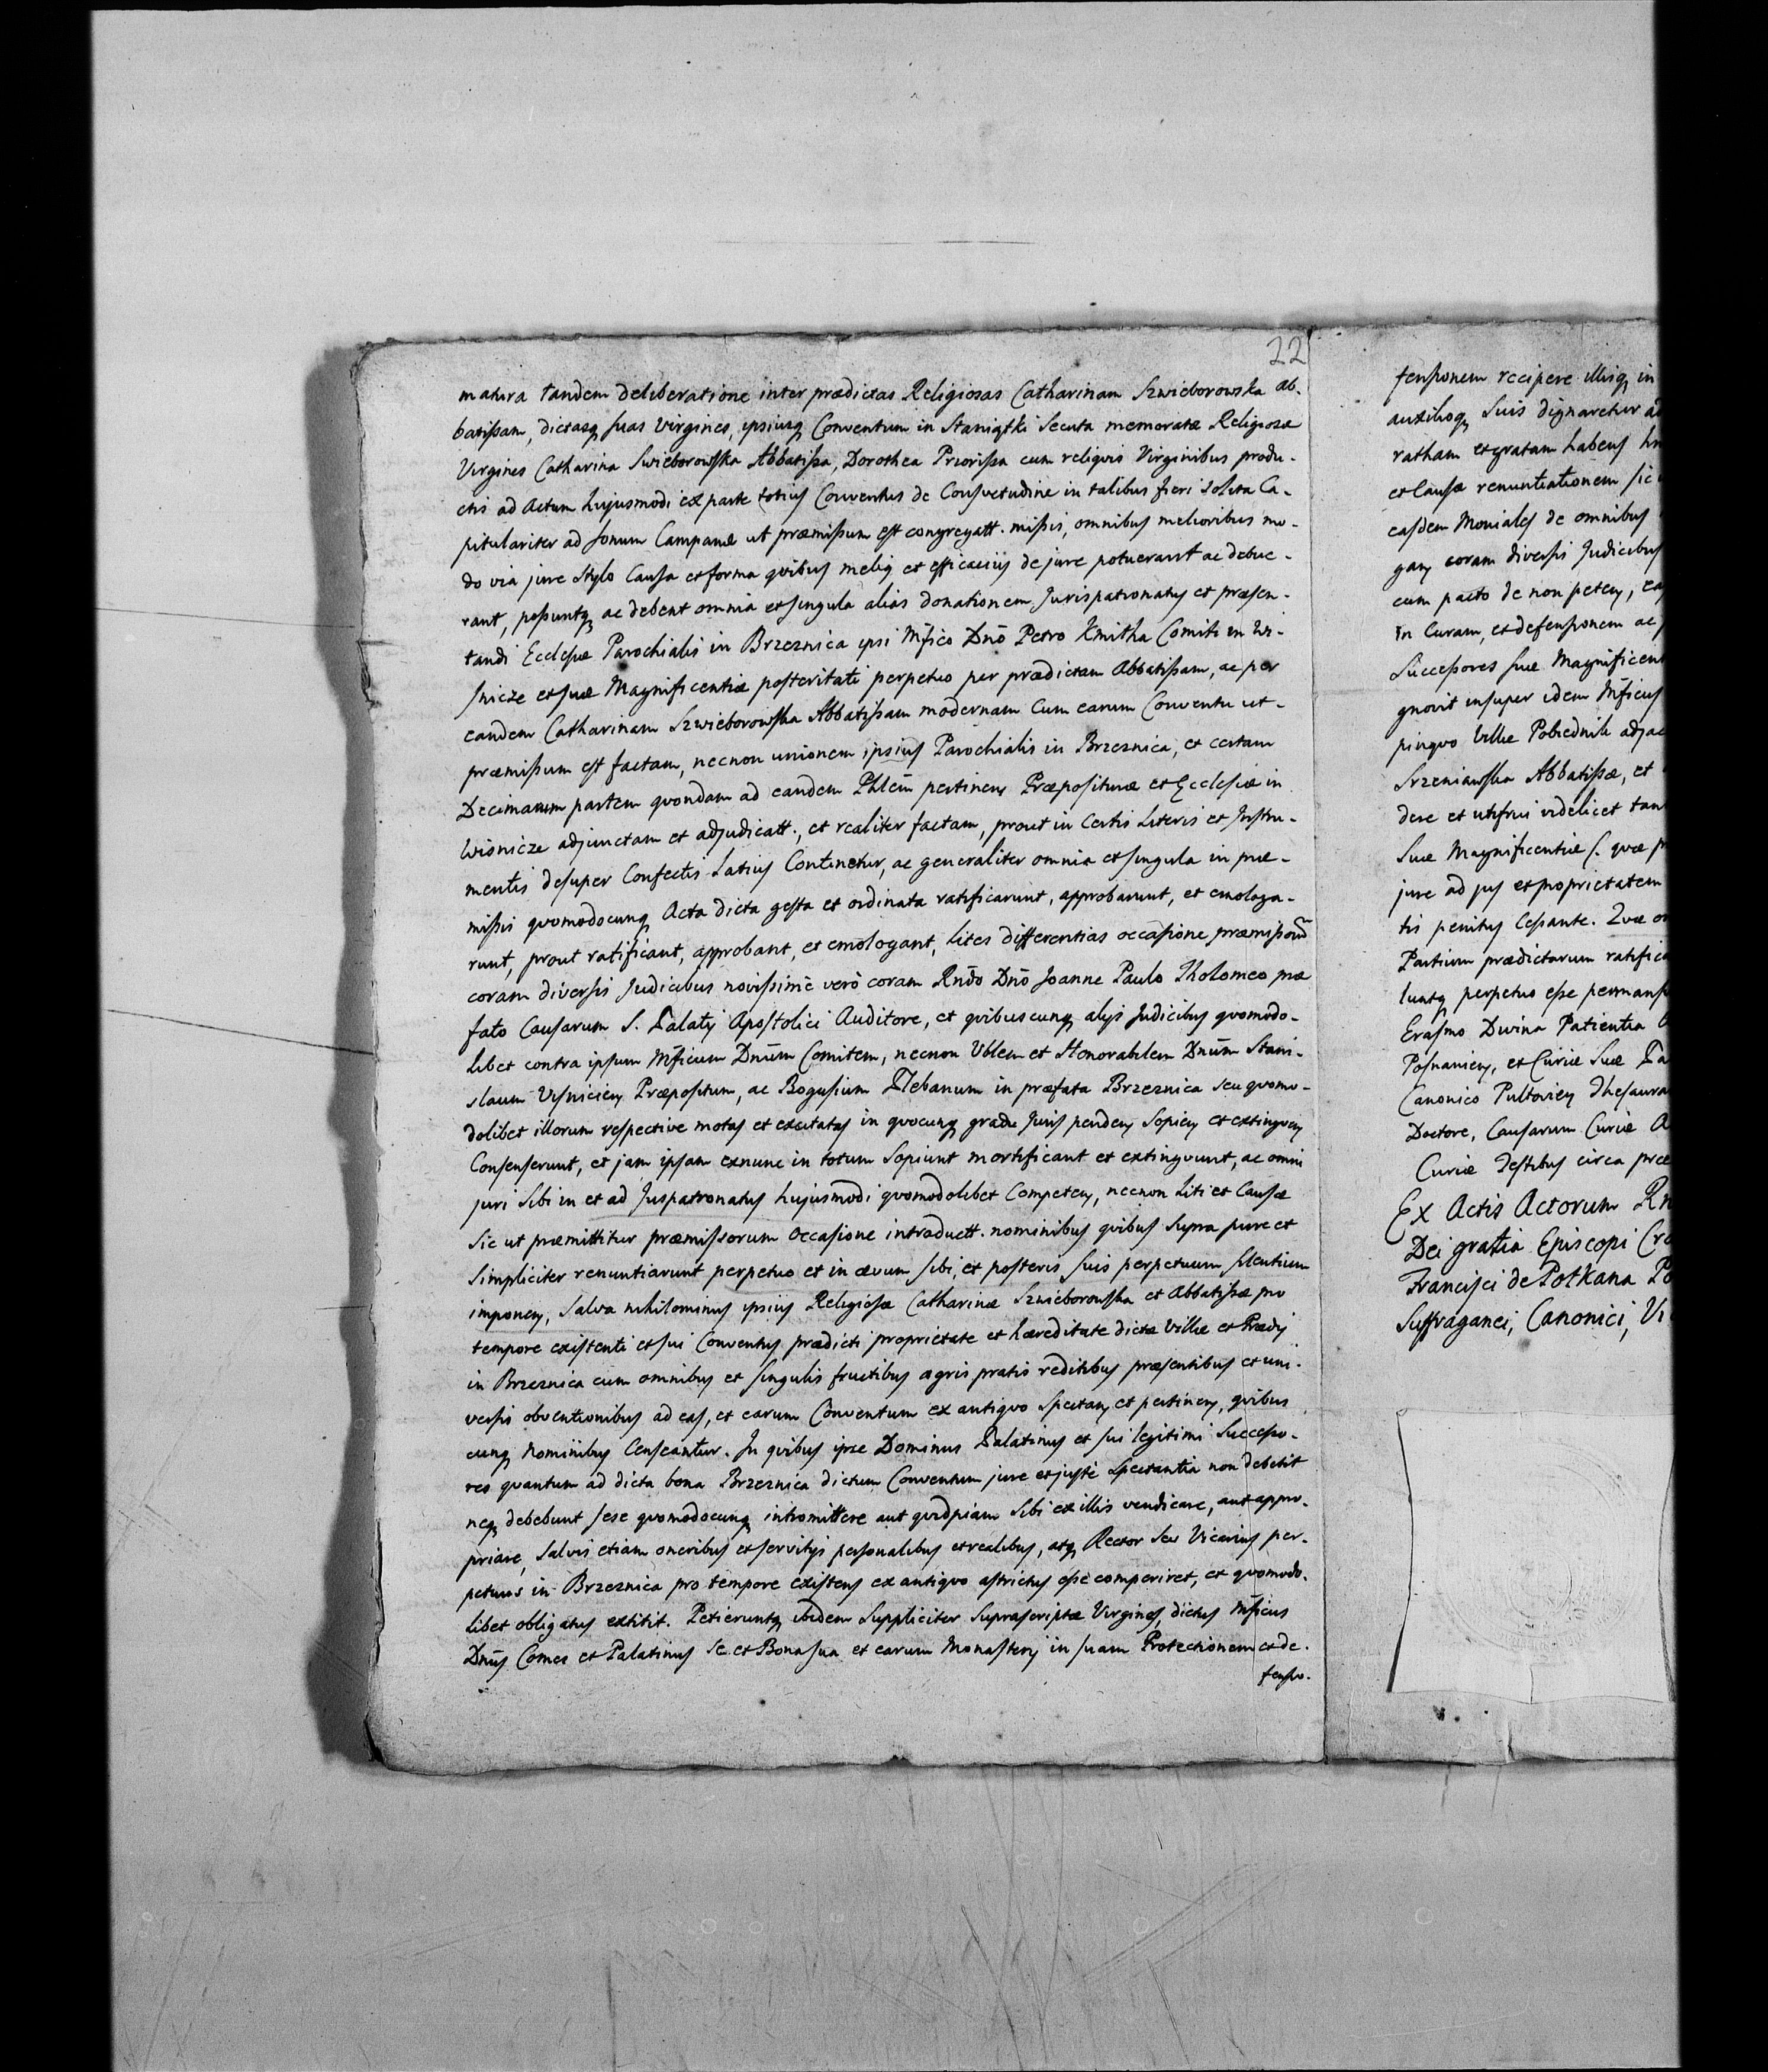 22
matura tandem deliberatione inter prædictas Religiosas Catharinam Szwieborowska ab-
batissam, dictasq suas Virgines, ipsiusq Conventum in Staniątki Secuta memoratæ Religiosæ
Virgines Catharina Swieborowska Abbatissa, Dorothea Priorissa cum reliqvis Virginibus produ-
ctis ad Actum hujusmodi ex parte totius Conventus de Consvetudine in talibus fieri solita Ca-
pitulariter ad sonum Campanæ ut præmissum est congregatt. missis, omnibus melioribus mo-
do via jure Stylo Causa et forma qvibus melig et efficaciùs de jure potuerant ac debue-
rant, possuntq ac debent omnia et singula alias donationem Jurispatronatus et præsen-
tandi Ecclesiæ Parochialis in Brzeznica ipsi Mfico Dno Petro Kmitha Comiti in Wi-
snicze et suæ Magnificentiæ posteritati perpetuo per prædictam Abbatissam, ac per
eandem Catharinam Szwieborowska Abbatissam modernam Cum earum Conventu ut-
præmissum est factam, necnon unionem ipsius Parochialis in Brzeznica, et certam
Decimarum partem qvondam ad eandem Phlem pertinens Præpositure et Ecclesiæ in
Wisnicze adjunctam et adjudicatt., et realiter factam, prout in Certis Literis et Instru-
mentis desuper Confectis Latius Continetur, ac generaliter omnia et singula in præ-
missis qvomodocunq Acta dicta gesta et ordinata ratificarunt, approbarunt, et emologa-
runt, prout ratificant, approbant, et emologant, Lites differentias occasione præmissorũ
coram diversis Judicibus novissimè verò coram Rndo Dno Joanne Paulo Tholomeo præ
fato Causarum S. Palatij Apostolici Auditore, et qvibuscunq alijs Judicibus qvomodo-
libet contra ipsum Mficum Dnum Comitem, necnon Vblem et Honorabilem Dnum Stani-
slaum Visnicien Præpositum, ac Bogusium Plebanum in præfata Brzeznica seu qvomo-
dolibet illorum respective motas et excitatas in qvocunq gradu Juris penden Sopien et extingven
Consenserunt, et jam ipsam exnunc in totum Sopiunt mortificant et extingvunt, ac omni
juri Sibi in et ad Juspatronatus hujusmodi qvomodolibet Competen, necnon Liti et Causæ
Sic ut præmittitur præmissorum Occasione introductt. nominibus qvibus Supra pure et
Simpliciter renuntiarunt perpetuo et in ævum sibi, et posteris suis perpetuum Silentium
imponen, Salva nihilominus ipsius Religiosæ Catharinæ Szwieborowska et Abbatissæ pro
tempore existenti et sui Conventus prædicti proprietate et hæreditate dictæ Villæ et Prædij
in Brzeznica cum omnibus et singulis fructibus agris pratis reditibus præsentibus et uni-
versis obventionibus ad eas, et earum Conventum ex antiqvo Spectan et pertinen, qvibus
cunq Nominibus Censeantur. In qvibus ipse Dominus Palatinus et sui legitimi Successo-
res qvantum ad dicta bona Brzeznica dictum Conventum jure et justè Spectantia non debebit
neq debebunt sese qvomodocunq intromittere aut qvidpiam Sibi ex illis vendicare, aut appro-
priare, Salvis etiam oneribus et servitijs personalibus et realibus, atq Rector Seu Vicarius per-
petuus in Brzeznica pro tempore existens ex antiqvo astrictus esse comperiret, et qvomodo-
libet obligatus extitit. Petieruntq ibidem Suppliciter Suprascriptæ Virgines, dictus Mficus
Dnus Comes et Palatinus Se et Bona sua et earum Monasterij in suam Protectionem et de-
fensio-
fensionem recipere illisq in
auxilioq Suis dignaretur
ratham et gratam habens
et Causæ renuntiationem sic
easdem Moniales de omnibus
coram diversis Judicibus
cum pacto de non peten,
in Curam, et defensionem ac
Successores suæ Magnificent
gnovit insuper idem Mficus
pingvo Villæ Pobiednik adjac
Srzeniawska Abbatissæ, et
dere et utifrui videlicet tam
Suæ Magnificentiæ
jure ad jus et proprietatem
tis penitus Cessante. Quæ
Partium prædictarum ratific
luntq perpetuo esse
Erasmo Divina Patientia
Posnanien, et Curiæ Suæ
Canonico Pultovien Thesaura
Doctore, Causarum Curiæ
Curiæ Testibus circa præ
Ex Actis Actorum
Dei gratia Episcopi
Francisci de Potkana
Suffraganei, Canonici,